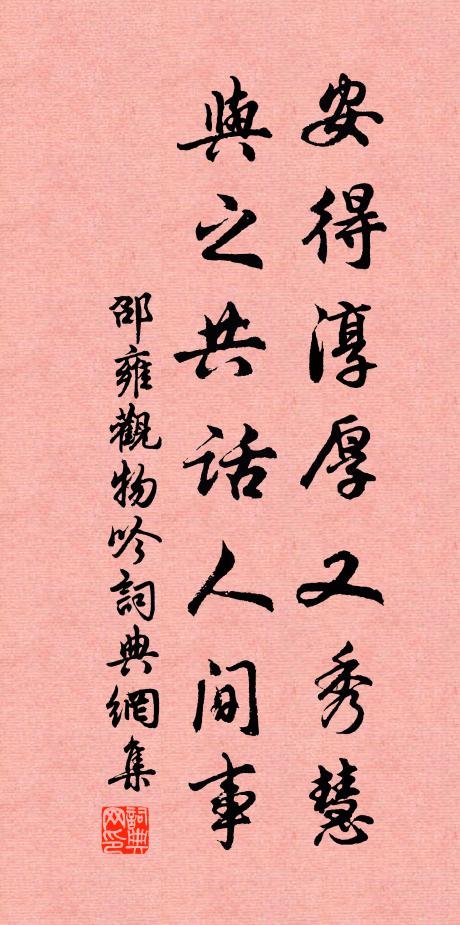 安得淳厚又秀慧
與之共話人間事
邵雍觀物吟詞典網集
詞典网印